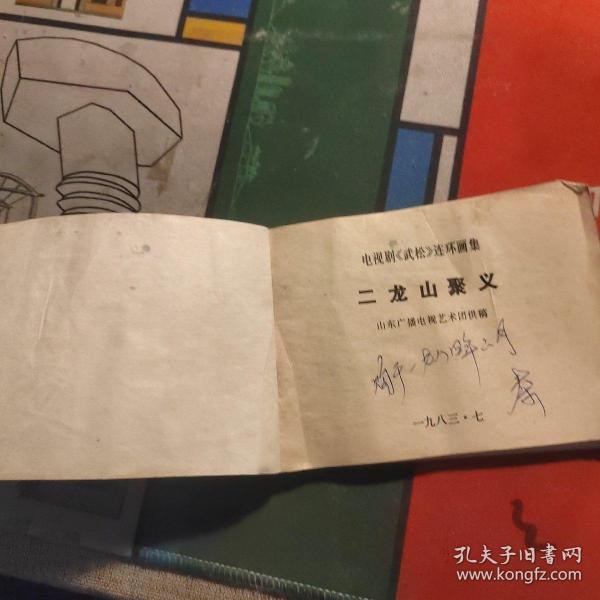 电视剧《武松》连环画集
二龙山聚义
山东广播电视艺术团供稿
一九八四年二月
一九八三·七
孔夫子旧书网
www.kongfz.com